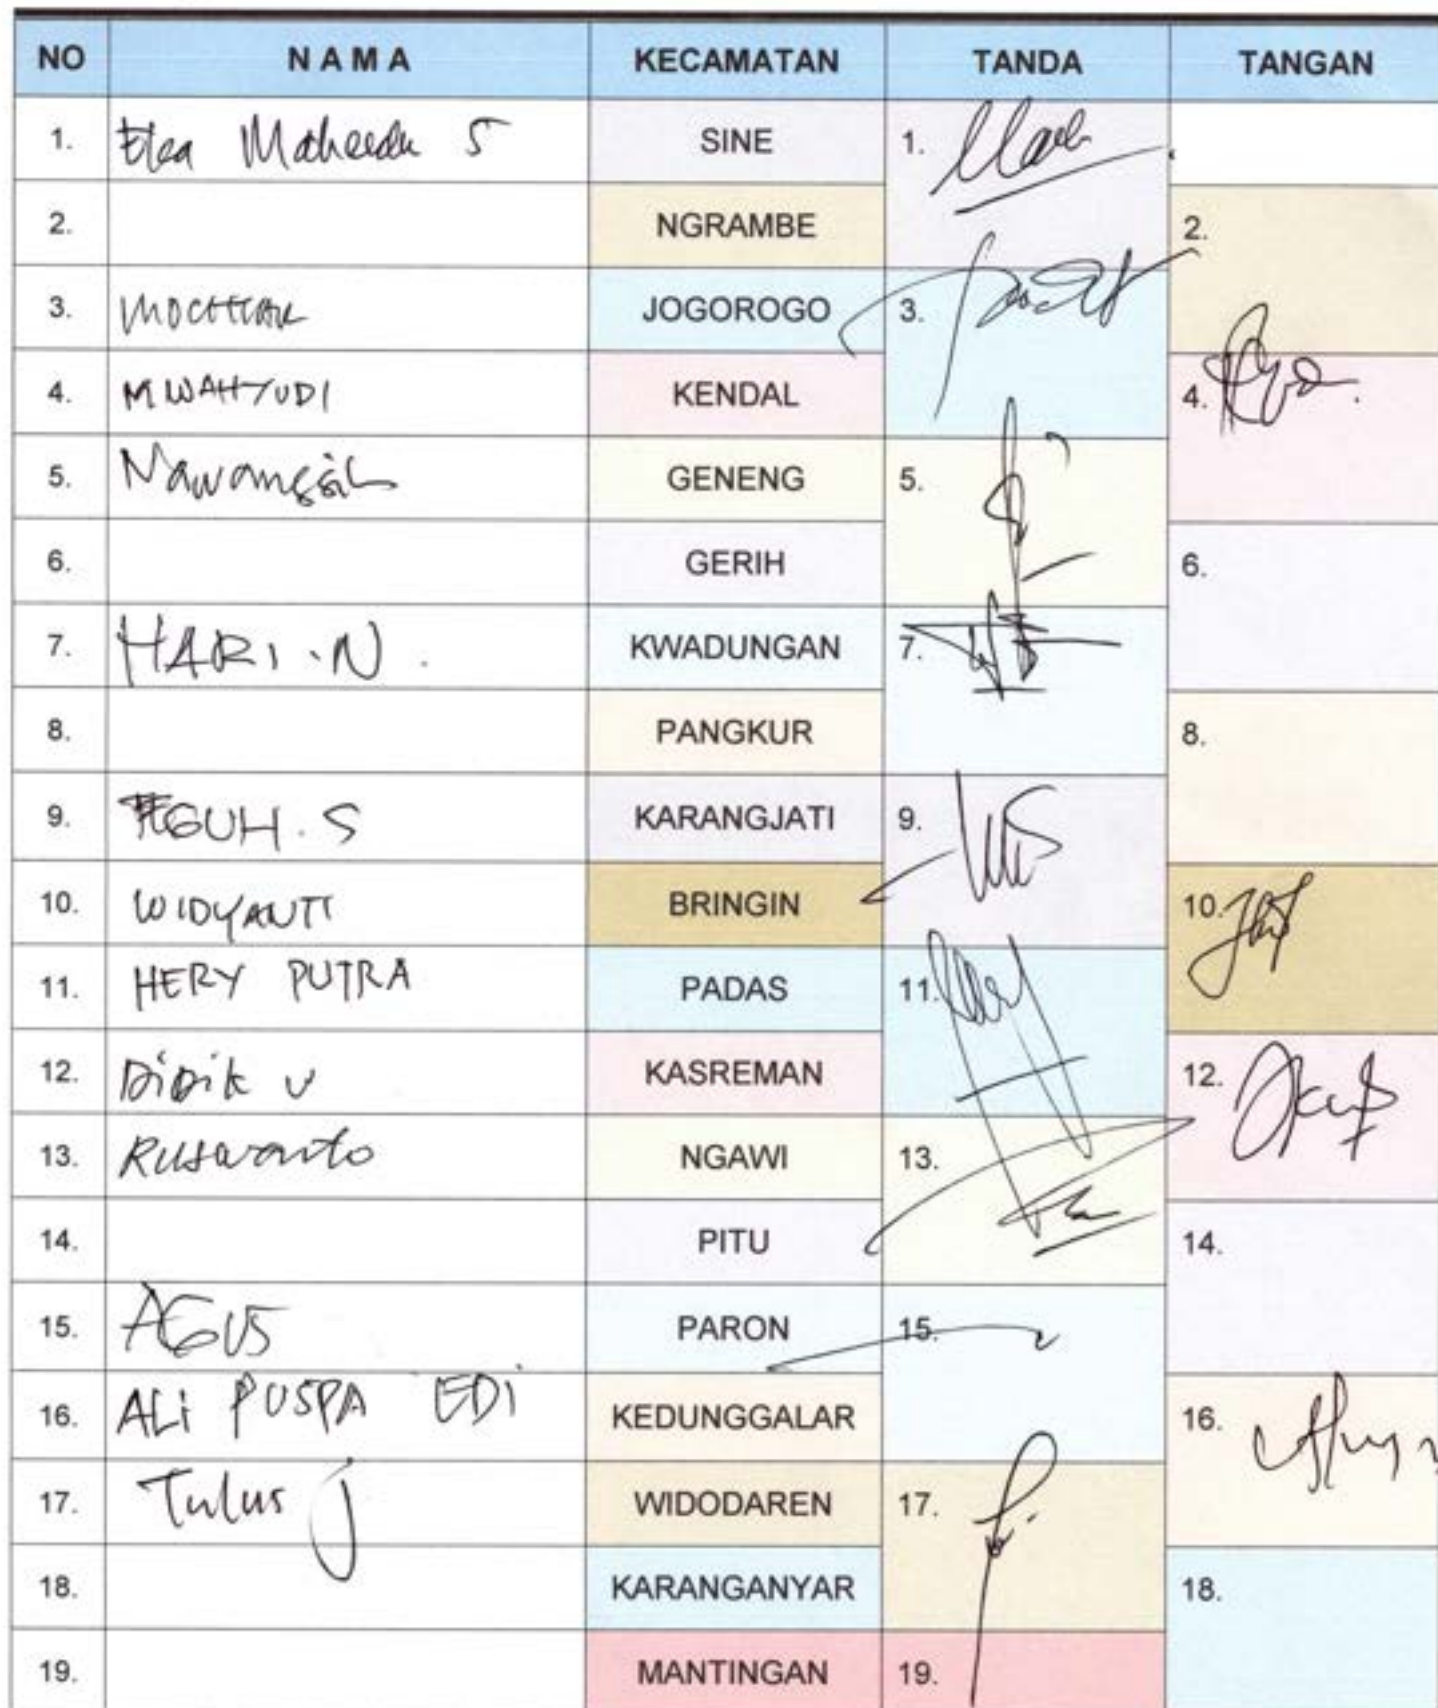 NO NAMA KECAMATAN TANDA TANGAN
1. S SINE 1.
2. NGRAMBE 2.
3. MOCHTAR JOGOROGO 3.
4. M WAHYUDI KENDAL 4.
5. Nawangsih GENENG 5.
6. GERIH 6.
7. HARI . N . KWADUNGAN 7.
8. PANGKUR 8.
9. TEGUH . S KARANGJATI 9.
10. WIDYANTI BRINGIN 10.
11. HERY PUTRA PADAS 11.
12. DiDik v KASREMAN 12.
13. Ruswanto NGAWI 13.
14. PITU 14.
15. AGUS PARON 15.
16. ALi PUSPA EDi KEDUNGGALAR 16.
17. Tulus J WIDODAREN 17.
18. KARANGANYAR 18.
19. MANTINGAN 19.